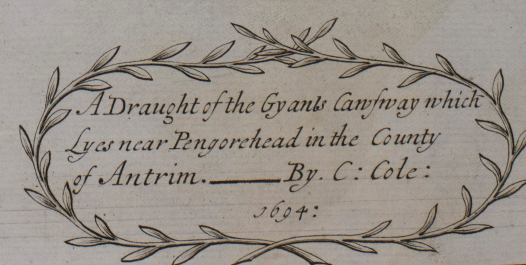 A Draught of the Gyants Cawsway which
Lyes near Pengorehead in the County
of Antrim. By. C: Cole:
1694: